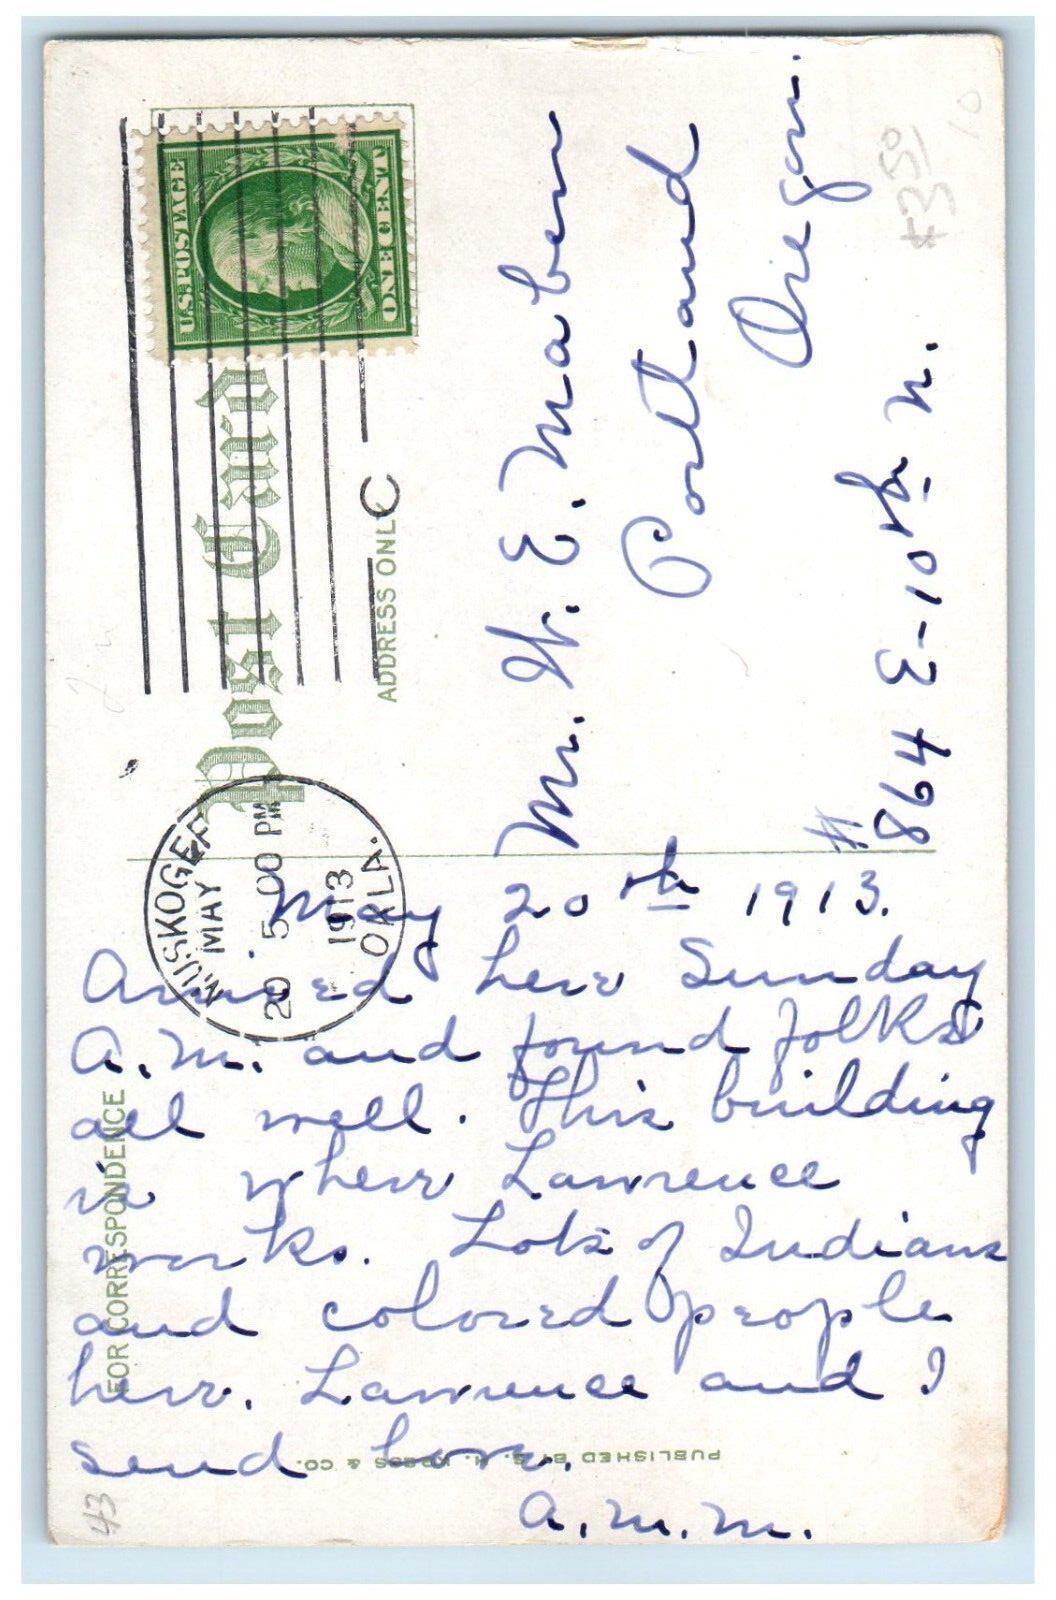 U.S. POSTAGE
ONE CENT
Post Card
ADDRESS ONLY
C
MUSKOGEE
OKLA.
MAY 20
5 00 PM
1913
Mr. W. E. Maben
Portland
Oregon.
# 864 E-10th N.
$3 50
10
May 20th 1913.
Arrived here Sunday
A.M. and found folks
all well. This building
is where Lawrence
works. Lots of Indians
and colored people
here. Lawrence and I
send love.
A.M.M.
FOR CORRESPONDENCE
PUBLISHED BY S. H. KRESS & CO.
43